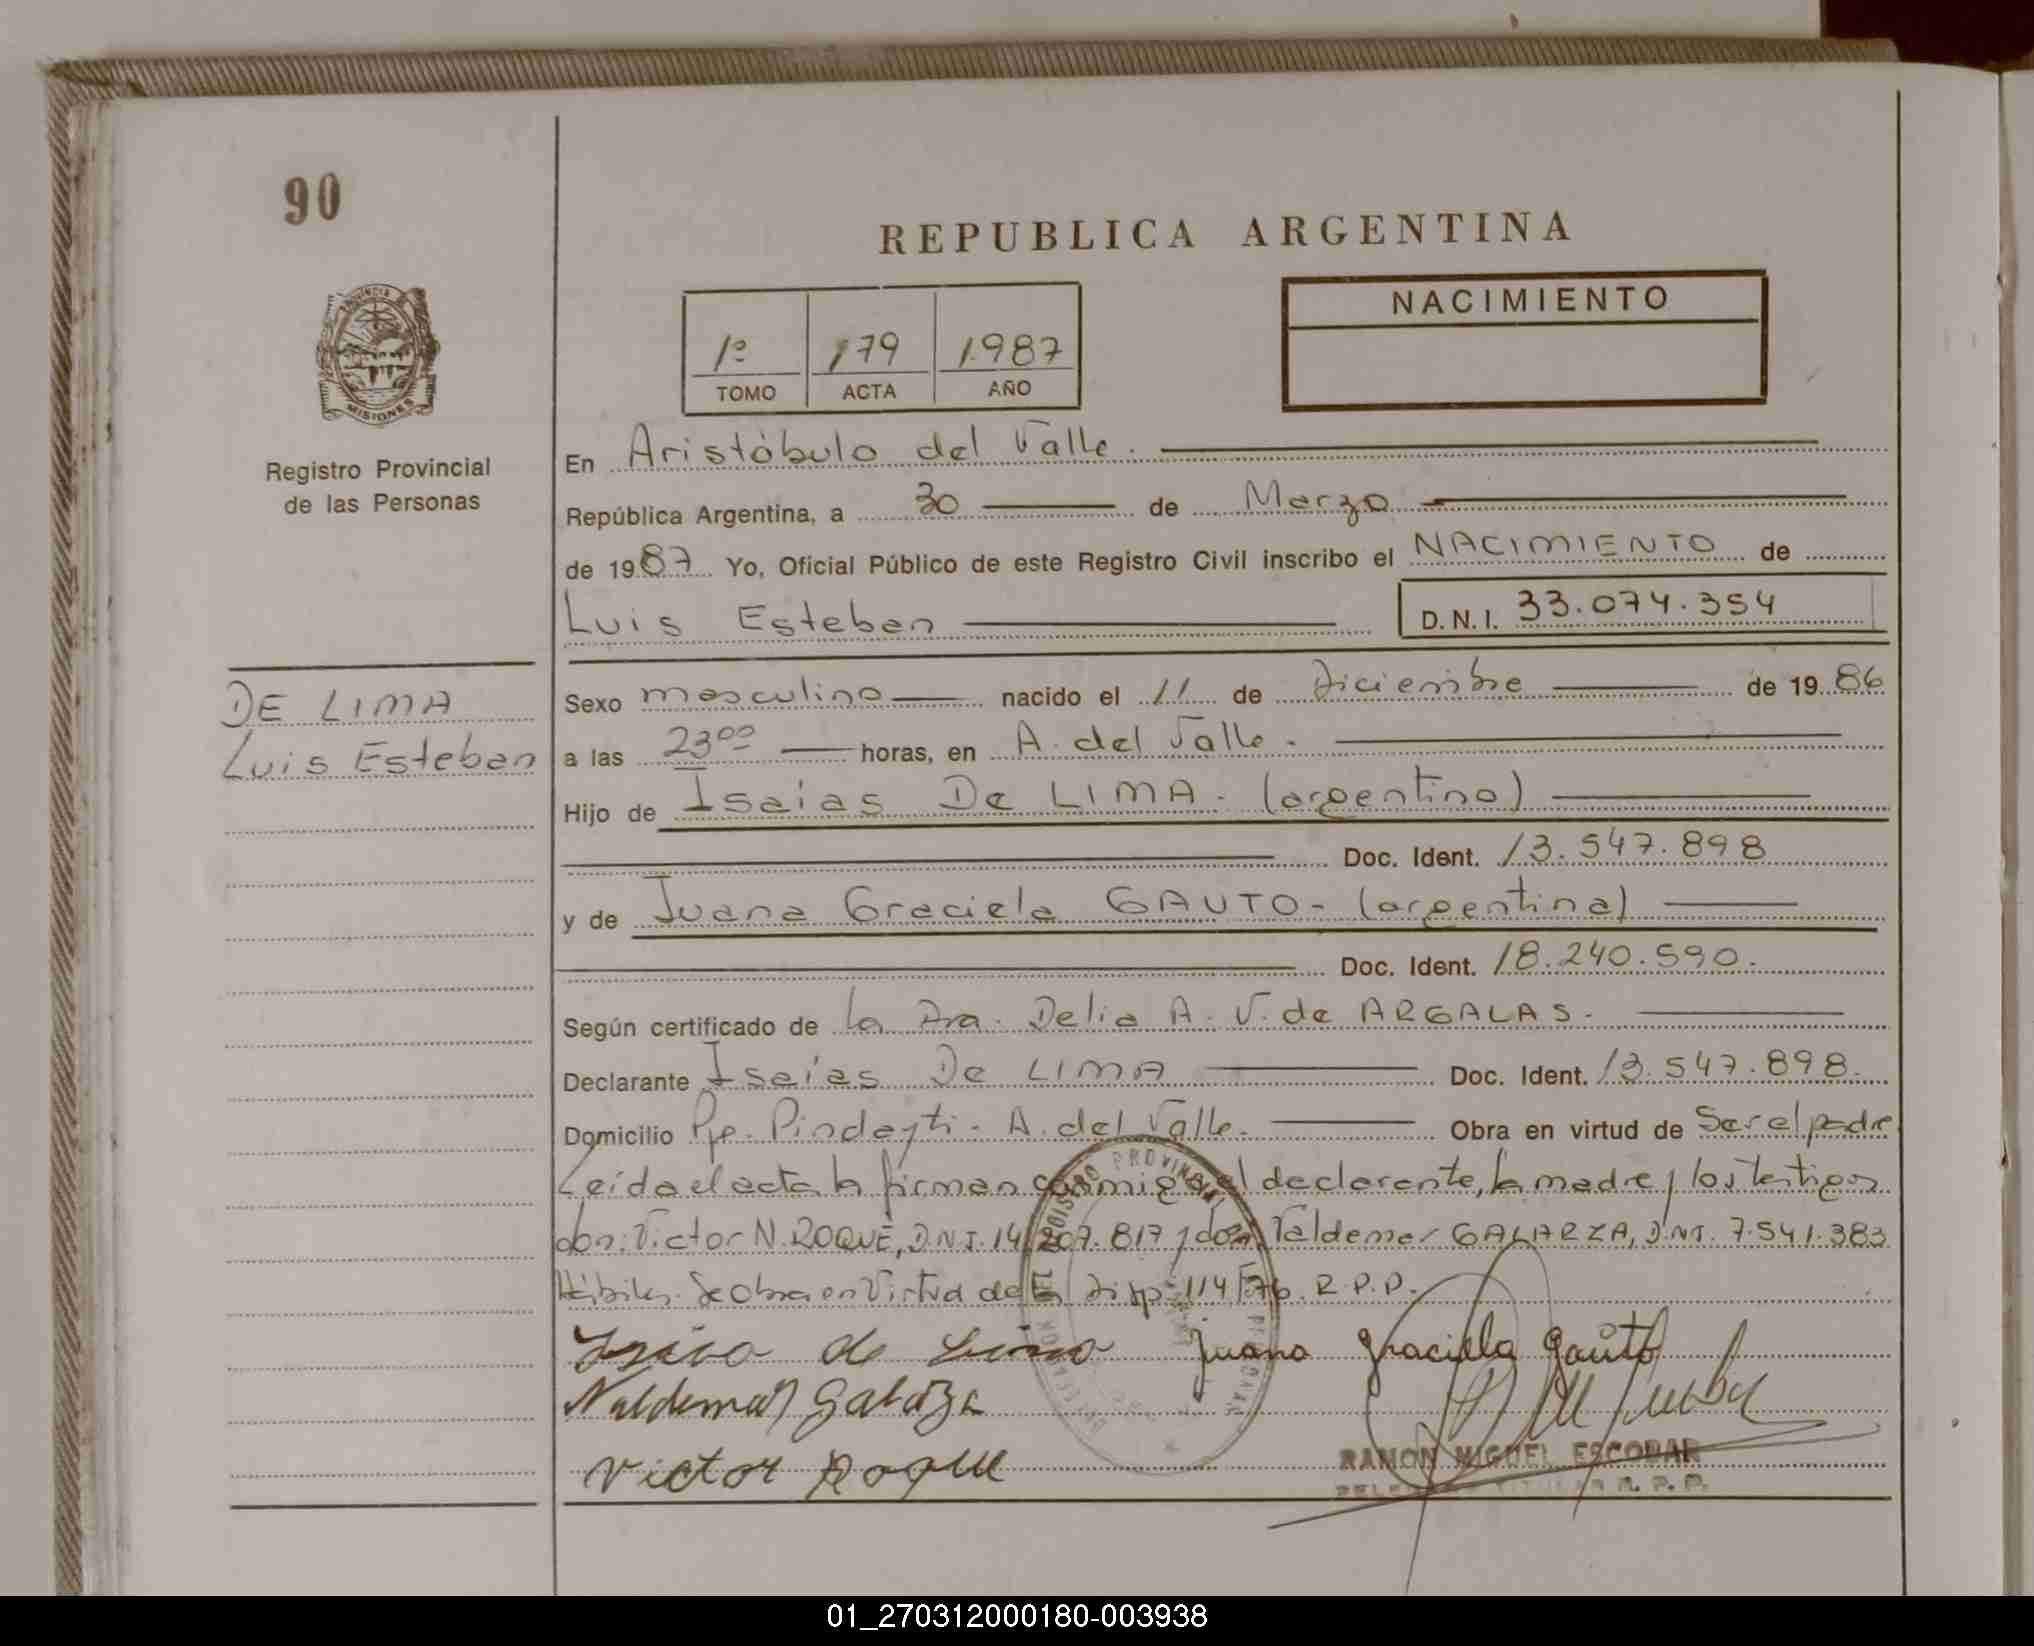 90
REPUBLICA ARGENTINA
PROVINCIA
MISIONES
Registro Provincial
de las Personas
1º 179 1987
TOMO ACTA AÑO
NACIMIENTO
En Aristóbulo del Valle.
República Argentina, a 30 de Marzo
de 1987 Yo, Oficial Público de este Registro Civil inscribo el NACIMIENTO de
Luis Esteban D.N.I. 33.074.354
DE LIMA
Luis Esteban
Sexo masculino nacido el 11 de Diciembre de 1986
a las 23⁰⁰ horas, en A. del Valle.
Hijo de Isaías De LIMA. (argentino)
Doc. Ident. 13.547.898
y de Juana Graciela GAUTO- (argentina)
Doc. Ident. 18.240.590.
Según certificado de la Dra. Delia A. V. de ARGALAS.
Declarante Isaías De LIMA Doc. Ident. 13.547.898.
Domicilio Pje. Pindayti- A. del Valle. Obra en virtud de Ser el padre
Leída el acta la firman conmigo el declarante, la madre y los testigos
don: Victor N. ROQUE, D.N.I. 14.207.817 y don Valdemar GALARZA, D.N.I. 7.541.383
Hábiles. Se obra en Virtud de la Disp. 114/76. R.P.P.
Isaias de Lima Juana Graciela Gauto
Valdemar Galarza
Victor Roque
RAMON MIGUEL ESCOBAR
R. P. P.
01_270312000180-003938